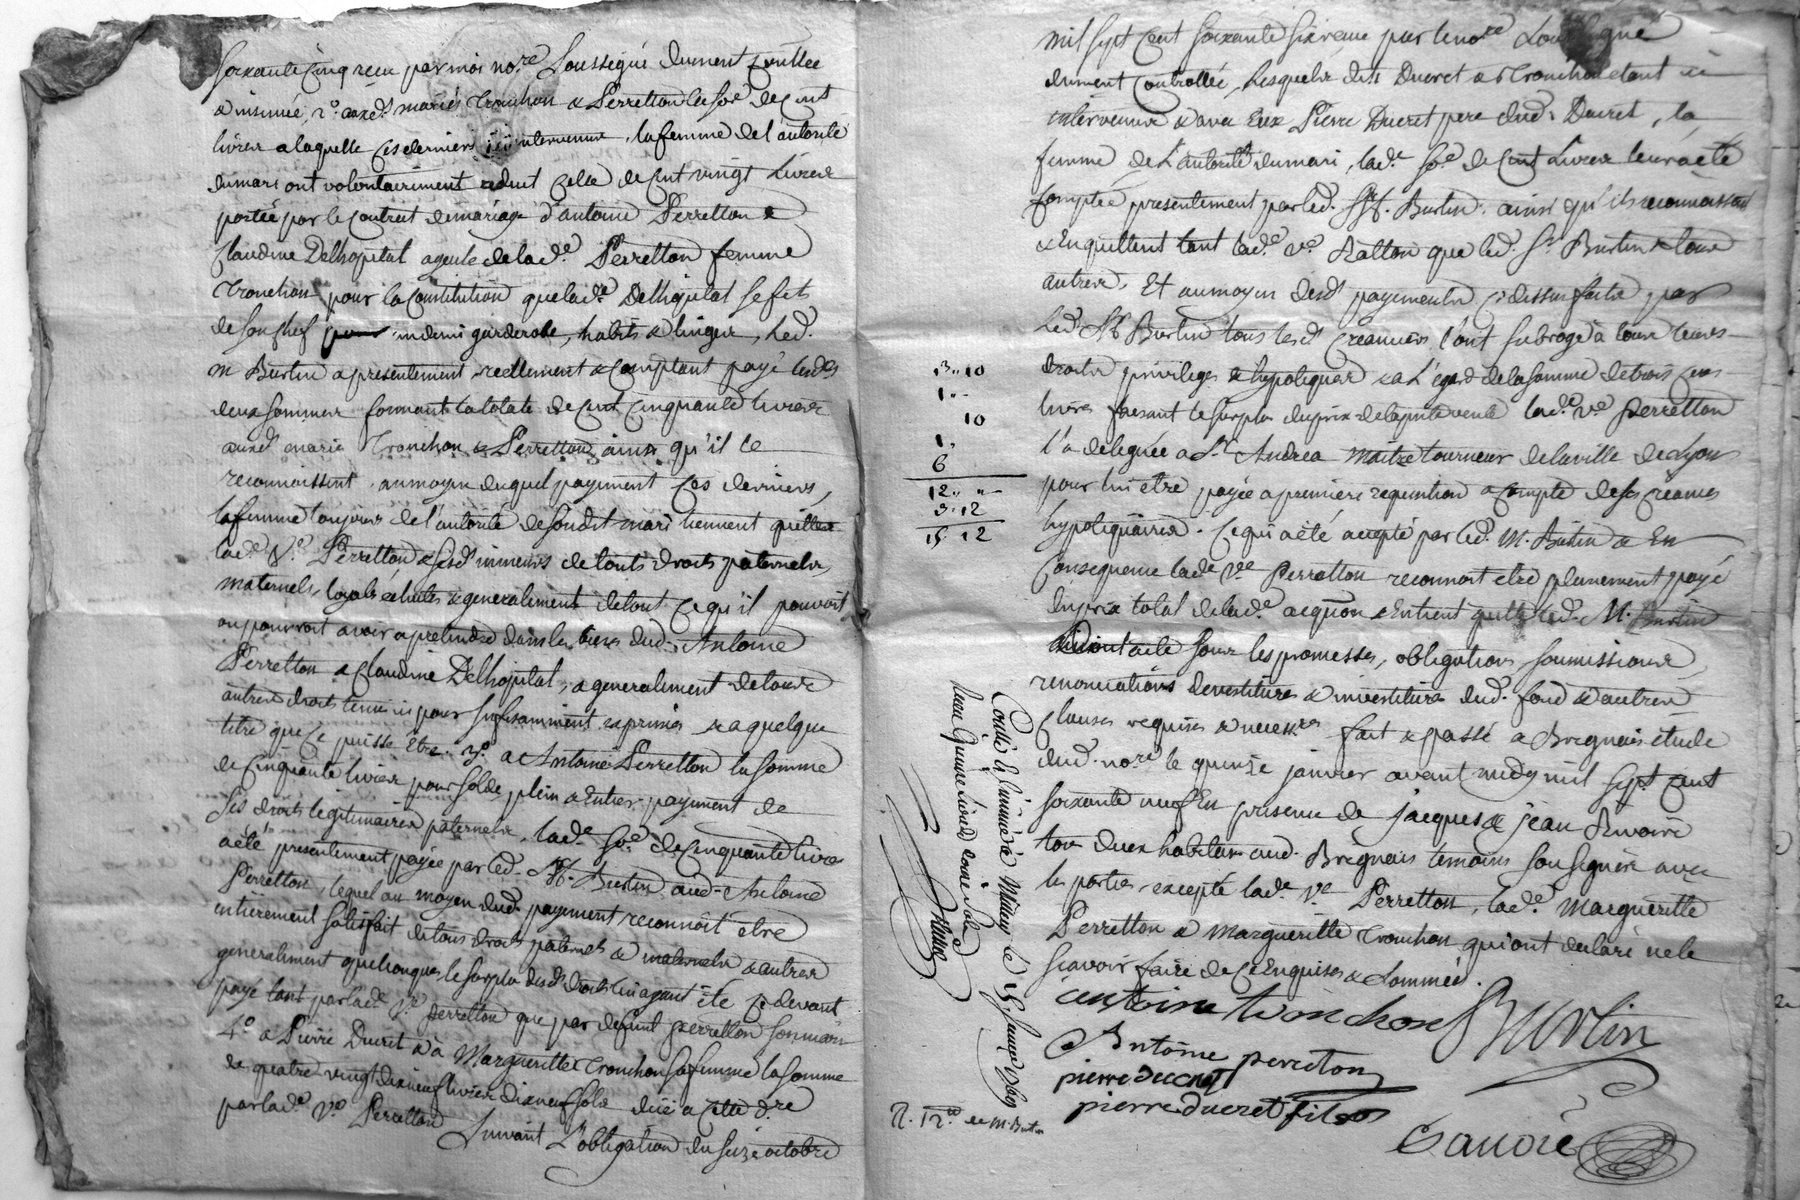 soixante cinq reçu par moi no.re soussigné dument controllé
& insinué, 2.° auxd. mariés Tronchon & Perretton la so.e de cent
livres a laquelle ces derniers ici intervenans, la femme de l'autorité
du mari ont volontairement reduit celle de cent vingt livres
portée par le contrat de mariage d'antoine Perretton &
Claudine Delhopital ayeule de lad.e Perretton femme
Tronchon pour la constitution que lad.e Delhopital se fit
de son chef en demi garderobe, habits & linges, Led.
m Burtin a presentement reellement & comptant payé lesd.
deux sommes formant la totale de cent cinquante livres
auxd. mariés Tronchon & Perretton ainsi qu'il le
reconnoissent, au moyen duquel payement ces derniers,
la femme toujours de l'autorité de sondit mari tiennent quitte
lad.e V.e Perretton & sesd. mineurs de touts droits paternels,
maternels, loyale échutes & generalement de tout ce qu'il pouvoit
ou pourroit avoir a pretendre dans les biens dud. Antoine
Perretton & Claudine Delhopital, & generalement de tous
autres droits tenus ici pour suffisamment exprimés & a quelque
titre que ce puisse être. 3.° a Antoine Perretton la somme
de cinquante livres pour solde, plein & entier payement de
ses droits legitimaires paternels. lad.e so.e de cinquante livres
a été presentement payée par led. M. Burtin aud. Antoine
Perretton, lequel au moyen dud. payement reconnoît être
entierement satisfait de tous droits paternels & maternels & autres
generalement quelconques le surplus desd. droits lui ayant été cy devant
payé tant par lad.e V.e Perretton que par defunt Perretton son mari
4.° a Pierre Ducret & à Margueritte Tronchon sa femme la somme
de quatre vingt dix neuf livres dix neuf sols due a cette d.re
par lad.e V.e Perretton suivant L'obligation du seize octobre
mil sept cent soixante six reçue par le no.re soussigné
dument controllée, lesquels dits Ducret & Tronchon etant ici
intervenus & avec eux Pierre Ducret pere dud. Ducret, la
femme de L'autorité du mari, lad.e so.e de cent Livres leur a été
comptée presentement par led. M. Burtin. ainsi qu'ils reconnoissent
& en quittent tant lad.e v.e Perretton que led. S.r Burtin & tous
autres. Et au moyen desd. payements cy dessus faits par
led. M. Burtin tous lesd. creanciers l'ont subrogé à tous leurs
droits privileges & hypoteques & a L'egard de la somme de trois cens
livres faisant le surplus du prix de la pnte vente lad.e v.e Perretton
l'a deleguée a S.r Andrea maitre tourneur de la ville de Lyon
pour lui etre payée a premiere requisition a compte de ses creances
hypotequaires. Ce qui a été accepté par led. M. Burtin & en
consequence lad.e v.e Perretton reconnoit etre pleinement payé
du prix total de lad.e acqon & en tient quitte led. M. Burtin
sous les promesses, obligations, soumissions,
renonciations devestiture & investiture dud. fond & autres
clauses requises & necess.res fait & passé a Brignais etude
dud. no.re le quinze janvier avant midy mil sept cent
soixante neuf En presence de jacques & jean
tous deux habitans aud. Brignais temoins soussignés avec
les parties, excepté lad.e v.e Perretton, lad.e margueritte
Perretton & margueritte Tronchon, qui ont declaré ne le
sçavoir faire de ce Enquises & sommées.
antoine tronchon Burtin
Antoine perreton
pierre ducret
pierre ducret fils
3.. 10
1..
10
1..
6
12.. "
3.. 12
15.. 12